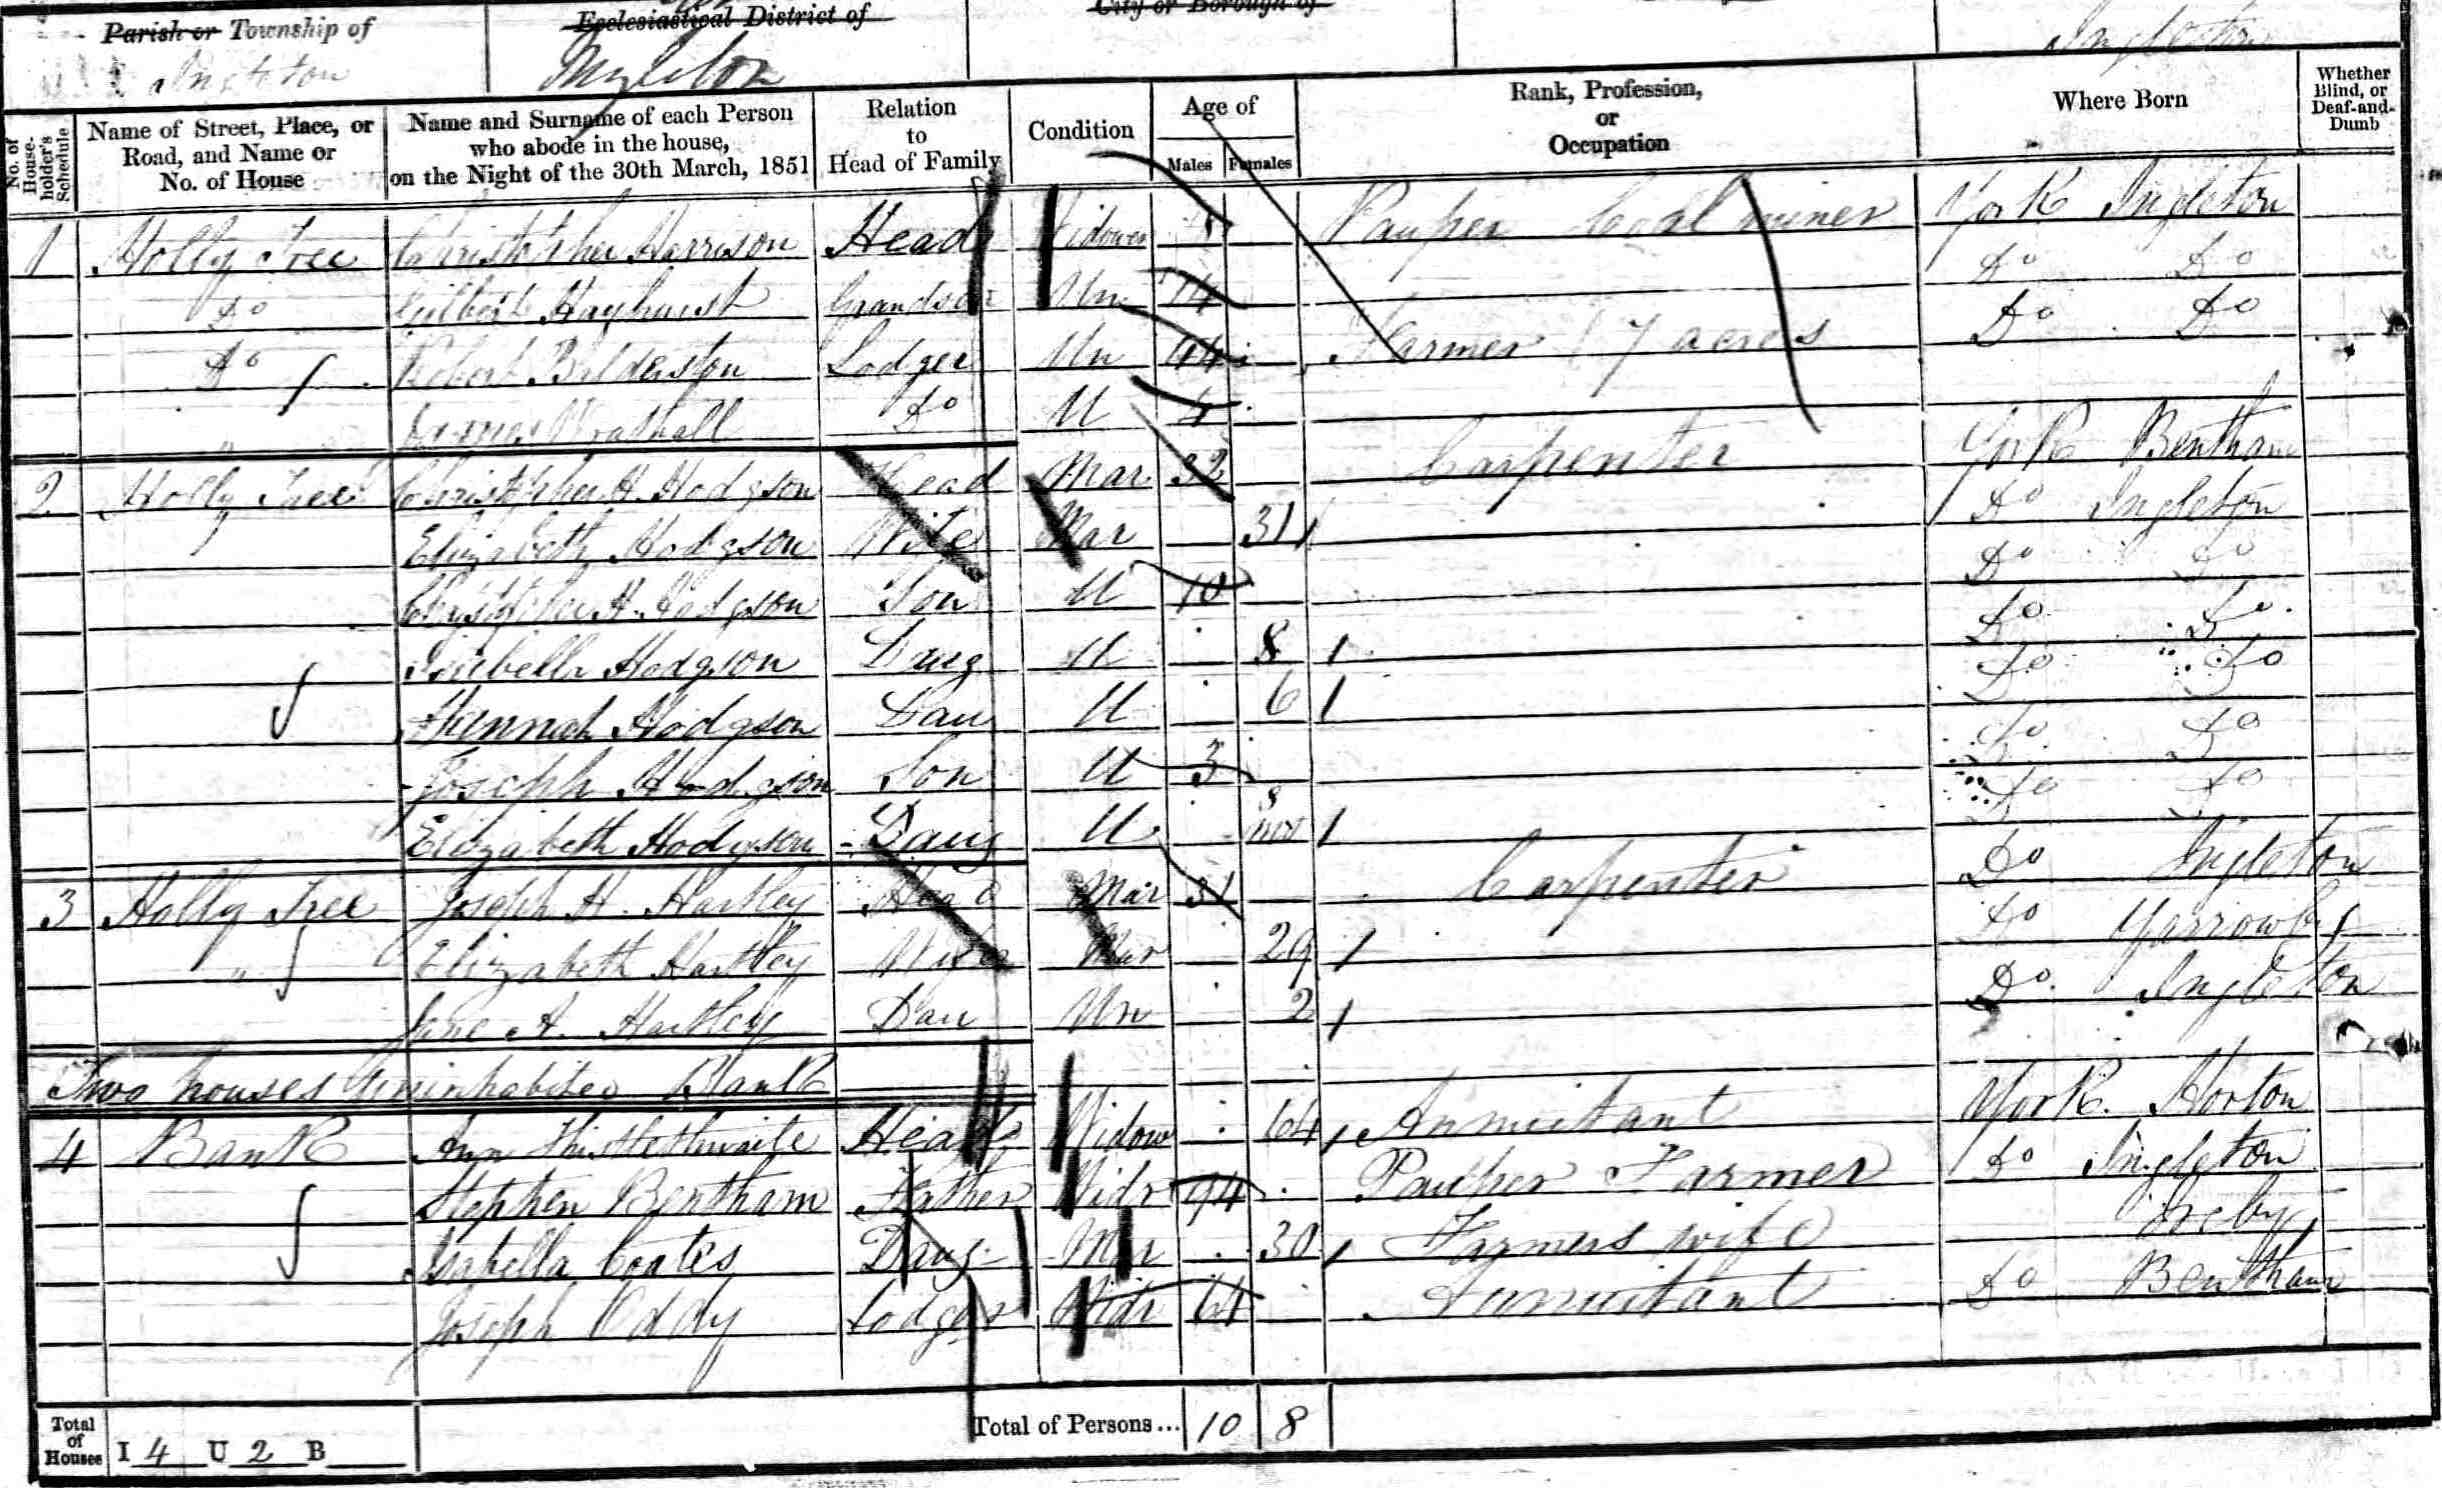 Parish or Township of
Ecclesiastical District of
City or Borough of
Ingleton
Ingleton
Ingleton
No. of House-holder's Schedule
Name of Street, Place, or Road, and Name or No. of House
Name and Surname of each Person who abode in the house, on the Night of the 30th March, 1851
Relation to Head of Family
Condition
Age of
Males Females
Rank, Profession, or Occupation
Where Born
Whether Blind, or Deaf-and-Dumb
1 Holly Tree Christopher Harrison Head Widower Pauper Coal miner York Ingleton
Do Gilbert Hayhurst Grandson Un 14 Do Do
Do Robert Balderston Lodger Un 44 Farmer 17 acres Do Do
" James Wrathall Do U 4
2 Holly Tree Christopher H. Hodgson Head Mar 32 Carpenter York Bentham
Elizabeth Hodgson Wife Mar 31 Do Ingleton
Christopher H. Hodgson Son U 10 Do Do
Isabella Hodgson Daug U 8 Do Do
Hannah Hodgson Dau U 6 Do Do
Joseph Hodgson Son U 3 Do Do
Elizabeth Hodgson Daug U 8 mo Do Do
3 Holly Tree Joseph H. Hartley Head Mar 31 Carpenter Do Ingleton
" Elizabeth Hartley Wife Mar 29 Do Yarrowby
Jane A. Hartley Dau Un 2 Do Ingleton
Two houses Uninhabited Bank
4 Bank Ann Thistlethwaite Head Widow 64 Annuitant York Horton
Stephen Bentham Father Widr 94 Pauper Farmer Do Ingleton
Isabella Coates Daug Mar 30 Farmers wife Ireby
Joseph Oddy Lodger Widr 64 Annuitant Do Bentham
Total of Houses I 4 U 2 B
Total of Persons... 10 8